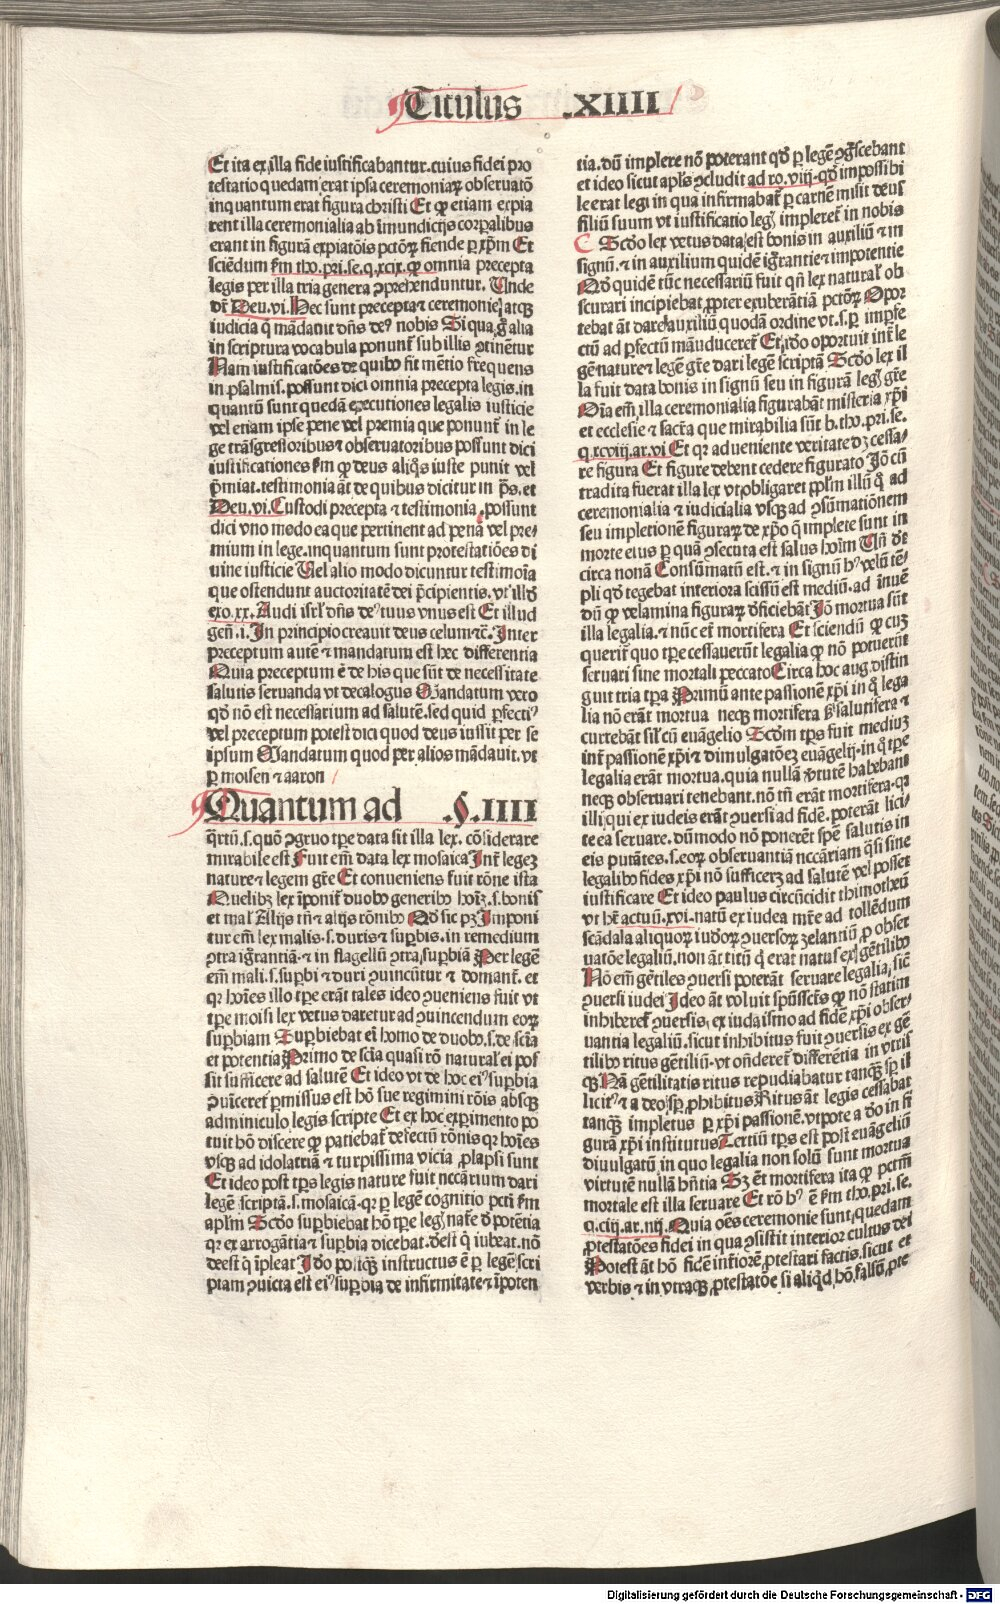 Titulus .XIIII
Et ita ex illa fide iustificabantur. cuius fidei pro
testatio quedam erat ipsa ceremoniaꝝ obseruatō
inquantum erat figura christi Et ꝙ etiam expia
rent illa ceremonialia ab īmundicijs corꝑalibus
erant in figurā expiatōis pctōꝝ fiende ꝑ xp̄m Et
sciēdum ẜm tho. pri. se. q. xcix. ꝙ omnia precepta
legis per illa tria genera ꝯprehenduntur. Unde
dr̄ Deu. vi. Hec sunt precepta ⁊ ceremonie atqꝫ
iudicia q̄ mādauit dn̄s deꝰ nobis Si qua ḡ alia
in scriptura vocabula ponunt̄ sub illis ꝯtinētur
Nam iustificatōes de quibꝰ fit mētio frequens
in psalmis. possunt dici omnia precepta legis. in
quantū sunt quedā executiones legalis iusticie
vel etiam ipse pene vel premia que ponunt̄ in le
ge trāsgressoribus ⁊ obseruatoribus possunt dici
iustificationes ẜm ꝙ deus aliq̄s iuste punit vel
p̄miat. testimonia āt de quibus dicitur in ps̄. et
Deu. vi. Custodi precepta ⁊ testimonia, possunt
dici vno modo ea que pertinent ad penā vel pre⸗
mium in lege. inquantum sunt protestatiōes di
uine iusticie Uel alio modo dicuntur testimoīa
que ostendunt auctoritatē dei p̄cipientis. vt illd̄
exo. xx. Audi isrl̄ dn̄s deꝰ tuus vnus est Et illud
gen̄. i. In principio creauit deus celum ⁊c̄. Inter
preceptum autē ⁊ mandatum est hec differentia
Quia preceptum ē de his que sūt de necessitate
salutis seruanda vt decalogus Mandatum vero
qd̄ nō est necessarium ad salutē. sed quid ꝑfectiꝰ
vel preceptum potest dici quod deus iussit per se
ipsum Mandatum quod per alios mādauit. vt
ꝑ moisen ⁊ aaron
Quantum ad .§.IIII
q̄rtū. s. quo ꝯgruo tꝑe data sit illa lex. cōsiderare
mirabile est Funt em̄ data lex mosaica Int̄ legeꝫ
nature ⁊ legem gr̄e Et conueniens fuit rōne ista
Quelibꝫ lex īponit̄ duobꝰ generibꝰ hoīꝫ. s. bonis
et mal̄ Alijs tn̄ ⁊ alijs rōnibꝰ Qd̄ sic pꝫ Imponi
tur em̄ lex malis. s. duris ⁊ suꝑbis. in remedium
ꝯtra ig̃rantiā. ⁊ in flagellū ꝯtra suꝑbiā Per legē
em̄ mali. s. suꝑbi ⁊ duri ꝯuincūtur ⁊ domant̄. et
qꝛ hoīes illo tꝑe erāt tales ideo ꝯueniens fuit vt
tꝑe moisi lex vetus daretur ad ꝯuincendum eoꝝ
suꝑbiam Suꝑbiebat em̄ homo de duobꝰ. s. de scīa
et potentia Primo de scīa quasi rō natural̄ ei pos
sit sufficere ad salutē Et ideo vt de hoc eiꝰ suꝑbia
ꝯuīceret̄ ꝑmissus est hō sue regimini rōis absqꝫ
adminiculo legis scripte Et ex hoc exꝑimento po
tuit hō discere ꝙ patiebat̄ defectū rōnis qꝛ hoīes
vsqꝫ ad idolatriā ⁊ turpissima vicia ꝓlapsi sunt
Et ideo post tꝑs legis nature fuit nccārium dari
legē scriptā. s. mosaicā. qꝛ ꝑ legē cognitio pcti ẜm
apl̄m Scdo suꝑbiebat hō tꝑe leg̃ nat̄e d̄ potētia
qꝛ ex arrogātia ⁊ suꝑbia dicebat. d̄est q̄ iubeat. nō
deest q̄ īpleat Ido postq̄ꝫ instructus ē ꝑ legē scri
ptam ꝯuicta est eiꝰ suꝑbia de infirmitate ⁊ īpoten
tia. dū implere nō poterant qd̄ ꝑ legē ꝯg̃scebant
et ideo sicut apl̄s ꝯcludit ad ro. viij. qd̄ impossibi
le erat legi in qua infirmabat̄ ꝑ carnē misit deus
filiū suum vt iustificatio leg̃ impleret̄ in nobis
Scd̄o lex vetus data est bonis in auxiliū ⁊ in
signū. ⁊ in auxilium quidē ig̃rantie ⁊ impotentie
Qd̄ quidē tūc necessariū fuit qn̄ lex natural̄ ob
scurari incipiebat ꝓpter exuberātiā pctōꝝ Opor
tebat āt dare auxiliū quodā ordine vt. s. ꝑ imꝑfe
ctū ad ꝑfectū māuduceret̄ Et ido oportuit int̄ le
gē nature ⁊ legē gr̄e dari legē scriptā Scdo lex il
la fuit data bonis in signū seu in figurā leg̃ gr̄e
Oīa em̄ illa ceremonialia figurabāt misteria xp̄i
et ecclesie ⁊ sacr̄a que mirabilia sūt b. tho. pri. se.
q. xcviij. ar. vi Et qꝛ adueniente veritate dꝫ cessa⸗
re figura Et figure debent cedere figurato Iō cū
tradita fuerat illa lex vt obligaret ppl̄m illū q̄ ad
ceremonialia ⁊ iudicialia vsqꝫ ad ꝯsūmationem
seu impletionē figuraꝝ de xp̄o q̄ implete sunt in
morte eius ꝑ quā ꝯsecuta est salus hoīm Un̄ d̄r
circa nonā Consūmatū est. ⁊ in signū hꝰ velū tē⸗
pli qd̄ tegebat interiora scissū est mediū. ad īnuē
dū ꝙ velamina figuraꝝ d̄ficiebāt Iō mortua sūt
illa legalia. ⁊ nūc et̄ mortifera Et sciendū ꝙ cuꝫ
querit̄ quo tꝑe cessauerūt legalia ꝙ nō potuerūt
seruari sine mortali peccato Circa hoc aug. distin
guit tria tꝑa Primū ante passionē xp̄i in q̄ lega
lia nō erāt mortua neqꝫ mortifera sꝫ salutifera ⁊
currebāt sil̄ cū euāgelio Scdm tꝑs fuit mediuꝫ
int̄ passionē xp̄i ⁊ diuulgatōeꝫ euāgelij. in q̄ tꝑe
legalia erāt mortua. quia nullā v̄tutē habebant
neqꝫ obseruari tenebant. nō tn̄ erāt mortifera. qꝛ
illi qui ex iudeis erāt ꝯuersi ad fidē. poterāt lici⸗
te ea seruare. dūmodo nō ponerēt spē salutis in
eis putātes. s. eoꝝ obseruantiā nccāriam q̄si sine
legalibꝰ fides xp̄i nō sufficeꝫ ad salutē vel posset
iustificare Et ideo paulus circūcidit thimotheū
vt hr̄ actuū. xvi. natū ex iudea mr̄e ad tollēdum
scādala aliquoꝝ iudeoꝝ ꝯuersoꝝ zelantiū ꝓ obser
uatōe legaliū, non āt titū q̄ erat natus ex gētilibꝰ
Nō em̄ gētiles ꝯuersi poterāt seruare legalia, sic̄
ꝯuersi iudei Ideo āt voluit spūssct̄s ꝙ nō statim
inhiberet̄ ꝯuersis, ex iudaismo ad fidē xp̄i obser⸗
uantia legaliū. sicut inhibitus fuit ꝯuersis ex gē
tilibꝰ ritus gētiliū. vt on̄deret̄ differētia in vtris
qꝫ Nā gētilitatis ritus repudiabatur tanqꝫ sꝑ il
licitꝰ ⁊ a deo sꝑ ꝓhibitus Ritus āt legis cessabat
tanqꝫ impletus ꝑ xp̄i passionē. vtpote a dō in fi
gurā xp̄i institutus Tertiū tꝑs est post euāgeliū
diuulgatū in quo legalia non solū sunt mortua
virtutē nullā hn̄tia Sꝫ et̄ mortifera ita ꝙ pctm̄
mortale est illa seruare Et rō hꝰ ē ẜm tho. pri. se.
q. ciij. ar. iiij. Quia oēs ceremonie sunt quedam
ꝓtestatōes fidei in qua ꝯsistit interior cultus dei
Potest āt hō fidē int̄iorē ꝓtestari factis, sicut et
verbis ⁊ in vtraqꝫ ꝓtestatōe si aliq̄d hō falsū ꝓte
Digitalisierung gefördert durch die Deutsche Forschungsgemeinschaft - DFG